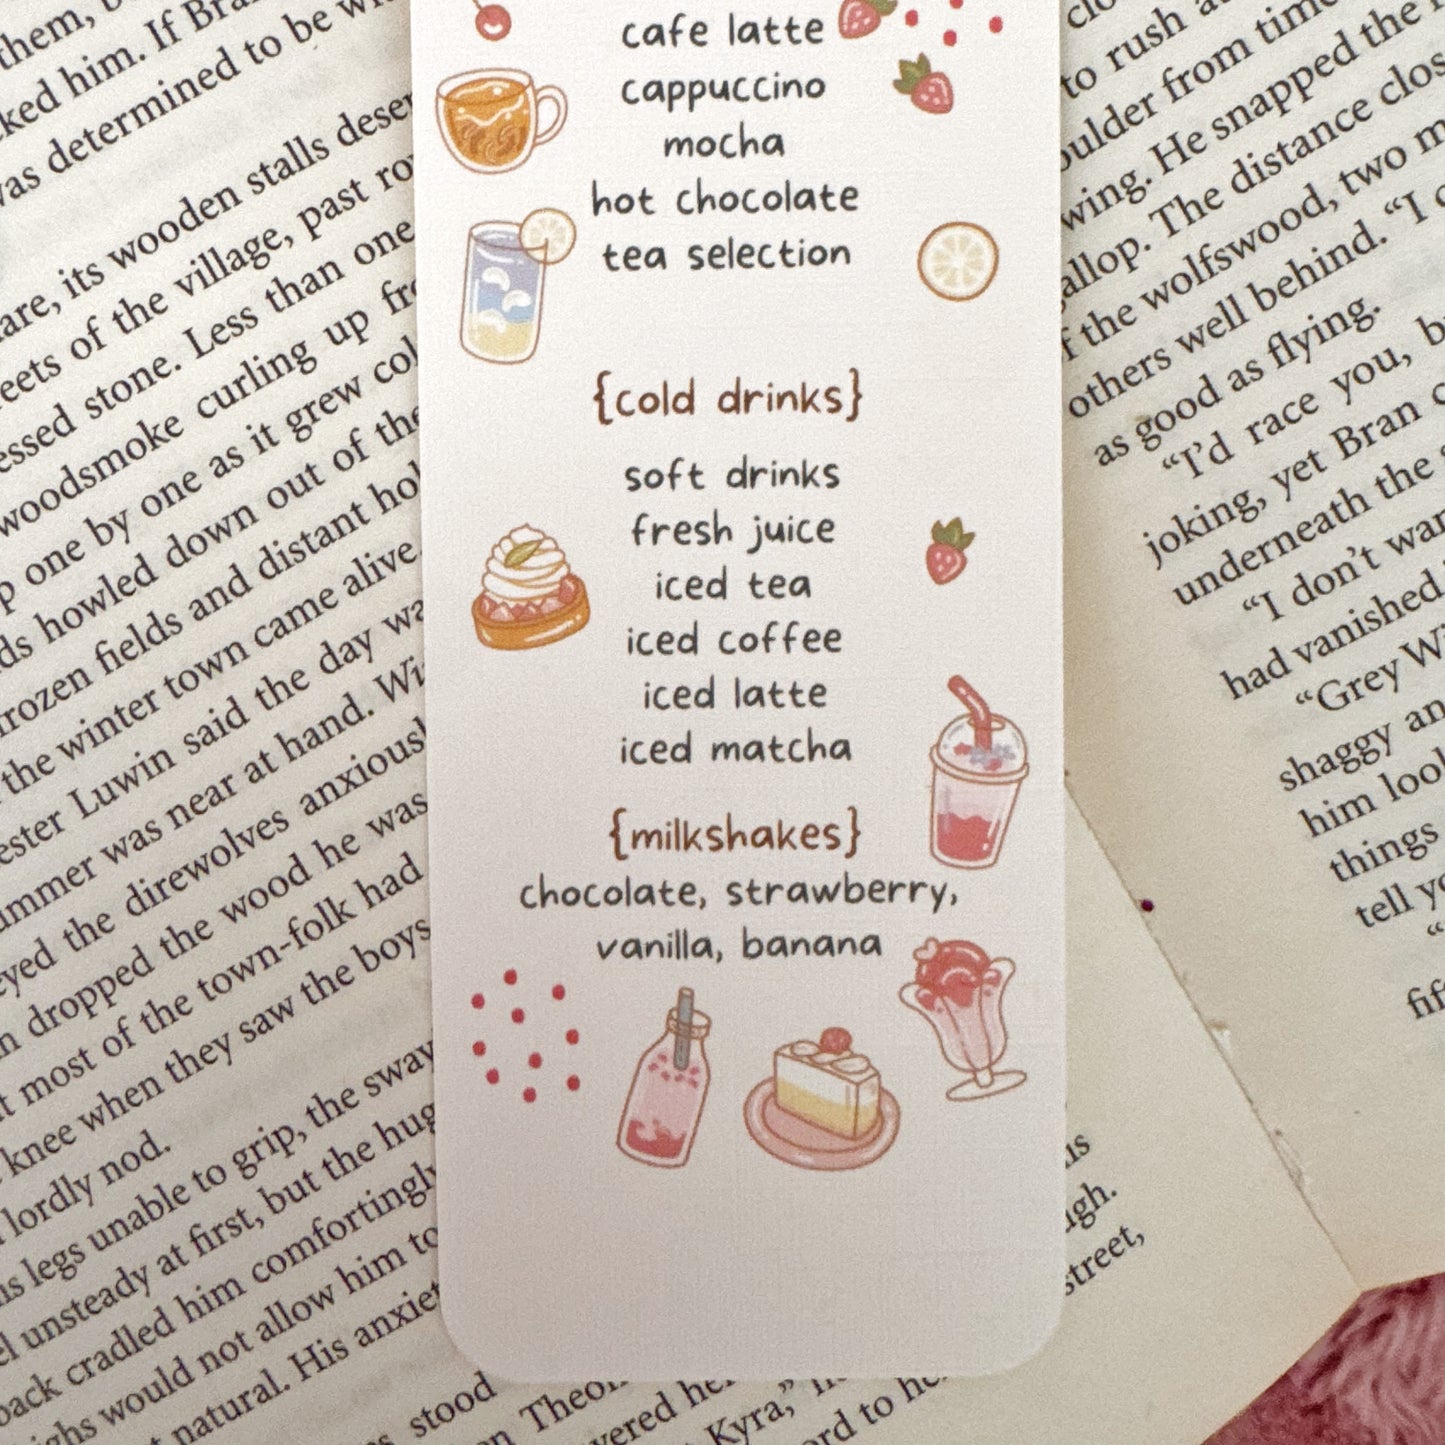 cafe latte
cappuccino
mocha
hot chocolate
tea selection
{cold drinks}
soft drinks
fresh juice
iced tea
iced coffee
iced latte
iced matcha
{milkshakes}
chocolate, strawberry,
vanilla, banana
them,
cked him. If
was determined to be
are, its wooden stalls
eets of the village, past
essed stone. Less than one
woodsmoke curling up
p one by one as it grew
ds howled down out of the
frozen fields and distant
the winter town came alive.
ester Luwin said the day
ummer was near at hand.
eyed the direwolves
n dropped the wood he was
t most of the town-folk had
knee when they saw the boys
lordly nod.
s legs unable to grip, the sway
el unsteady at first, but the
back cradled him comfortingly
ighs would not allow him to
t natural. His
stood
to rush
oulder from
wing. He snapped the
gallop. The distance
f the wolfswood, two
others well behind. "I
as good as flying.
"I'd race you,
joking, yet Bran
underneath the
"I don't
had vanished
"Grey
shaggy
him
things
tell
street,
Kyra,"
ord to